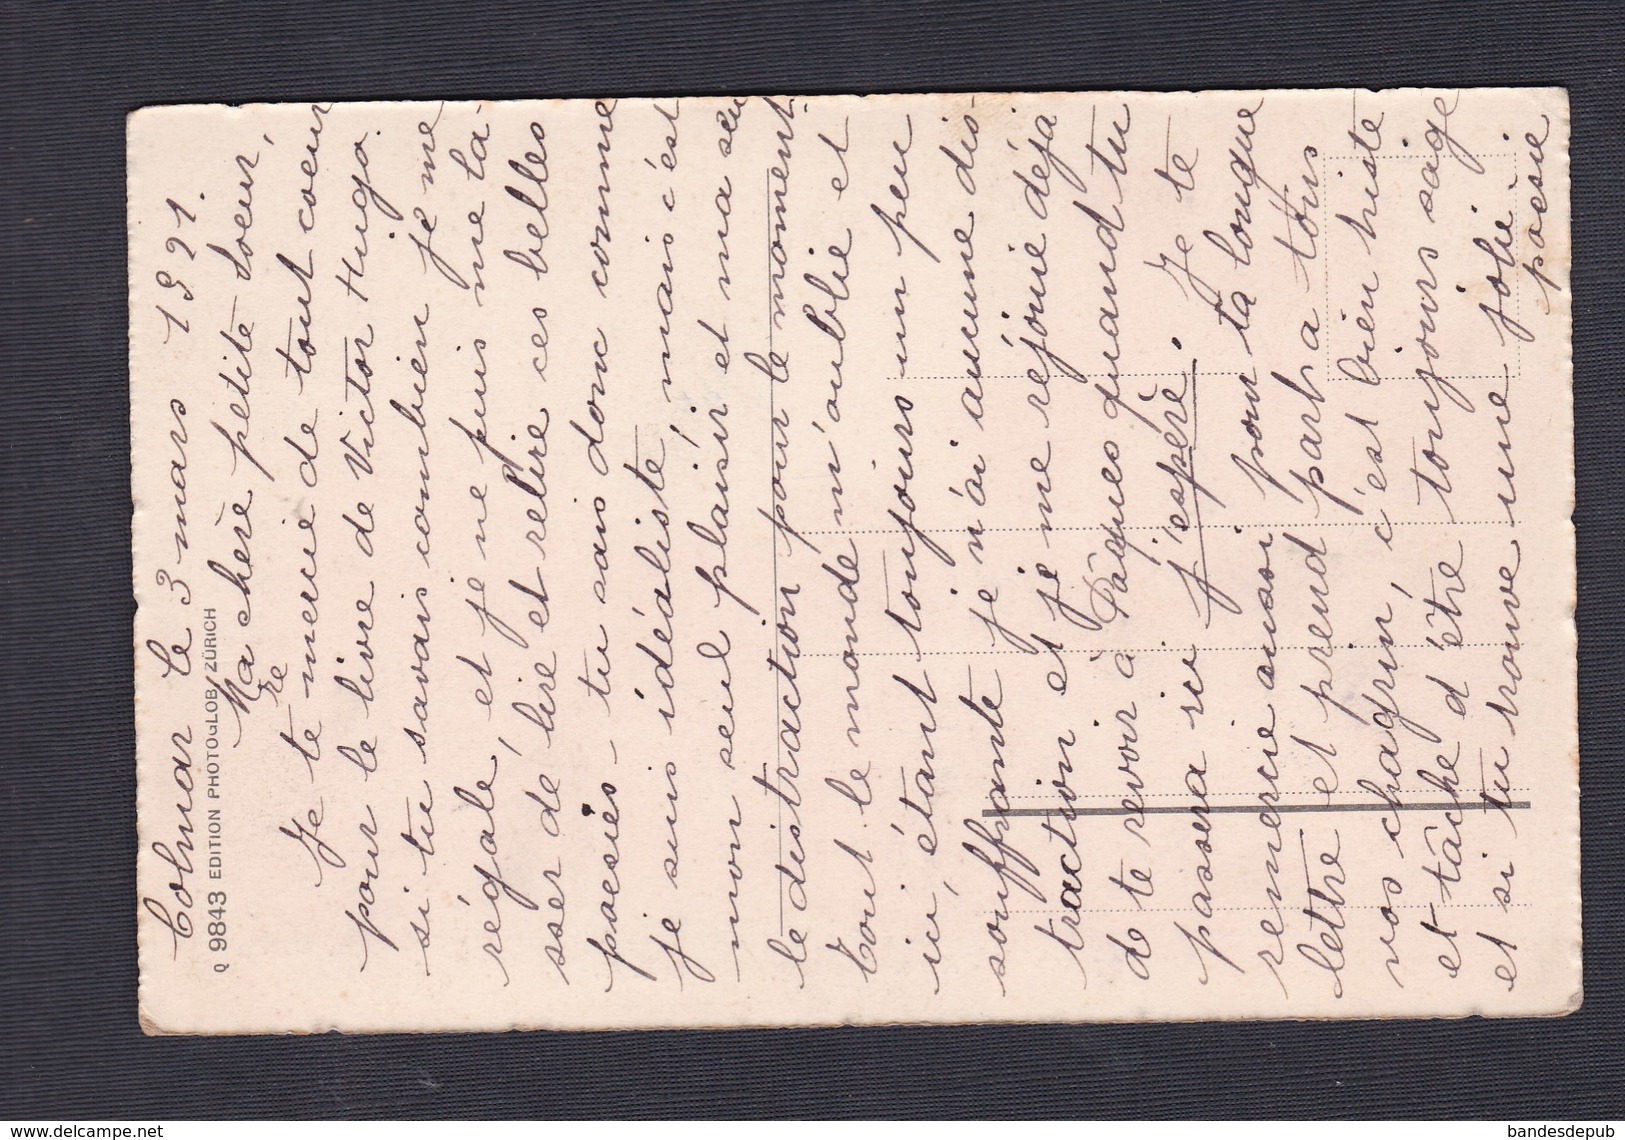 Colmar le 3 mars 1921.
Q 9843 EDITION PHOTOGLOB, ZÜRICH
Ma chère petite soeur,
Je te remercie de tout coeur
pour le livre de Victor Hugo.
si tu savais combien je me
régale, et je ne puis me la-
sser de lire et relire ces belles
poésies - tu sais donc comme
je suis idéaliste, mais c'est
mon seul plaisir et ma seu
le distraction pour le moment.
Tout le monde m'oublie et
ici, étant toujours un peu
souffrante je n'ai aucune dis-
traction et je me réjouie déja
de te revoir à Pâques quand tu
passera ici j'espère. Je te
remercie aussi pour ta longue
lettre et prend part a tous
vos chagrin, c'est bien triste
et tâche d'être toujours sage
et si tu trouve une jolie
poesie
www.delcampe.net
bandesdepub